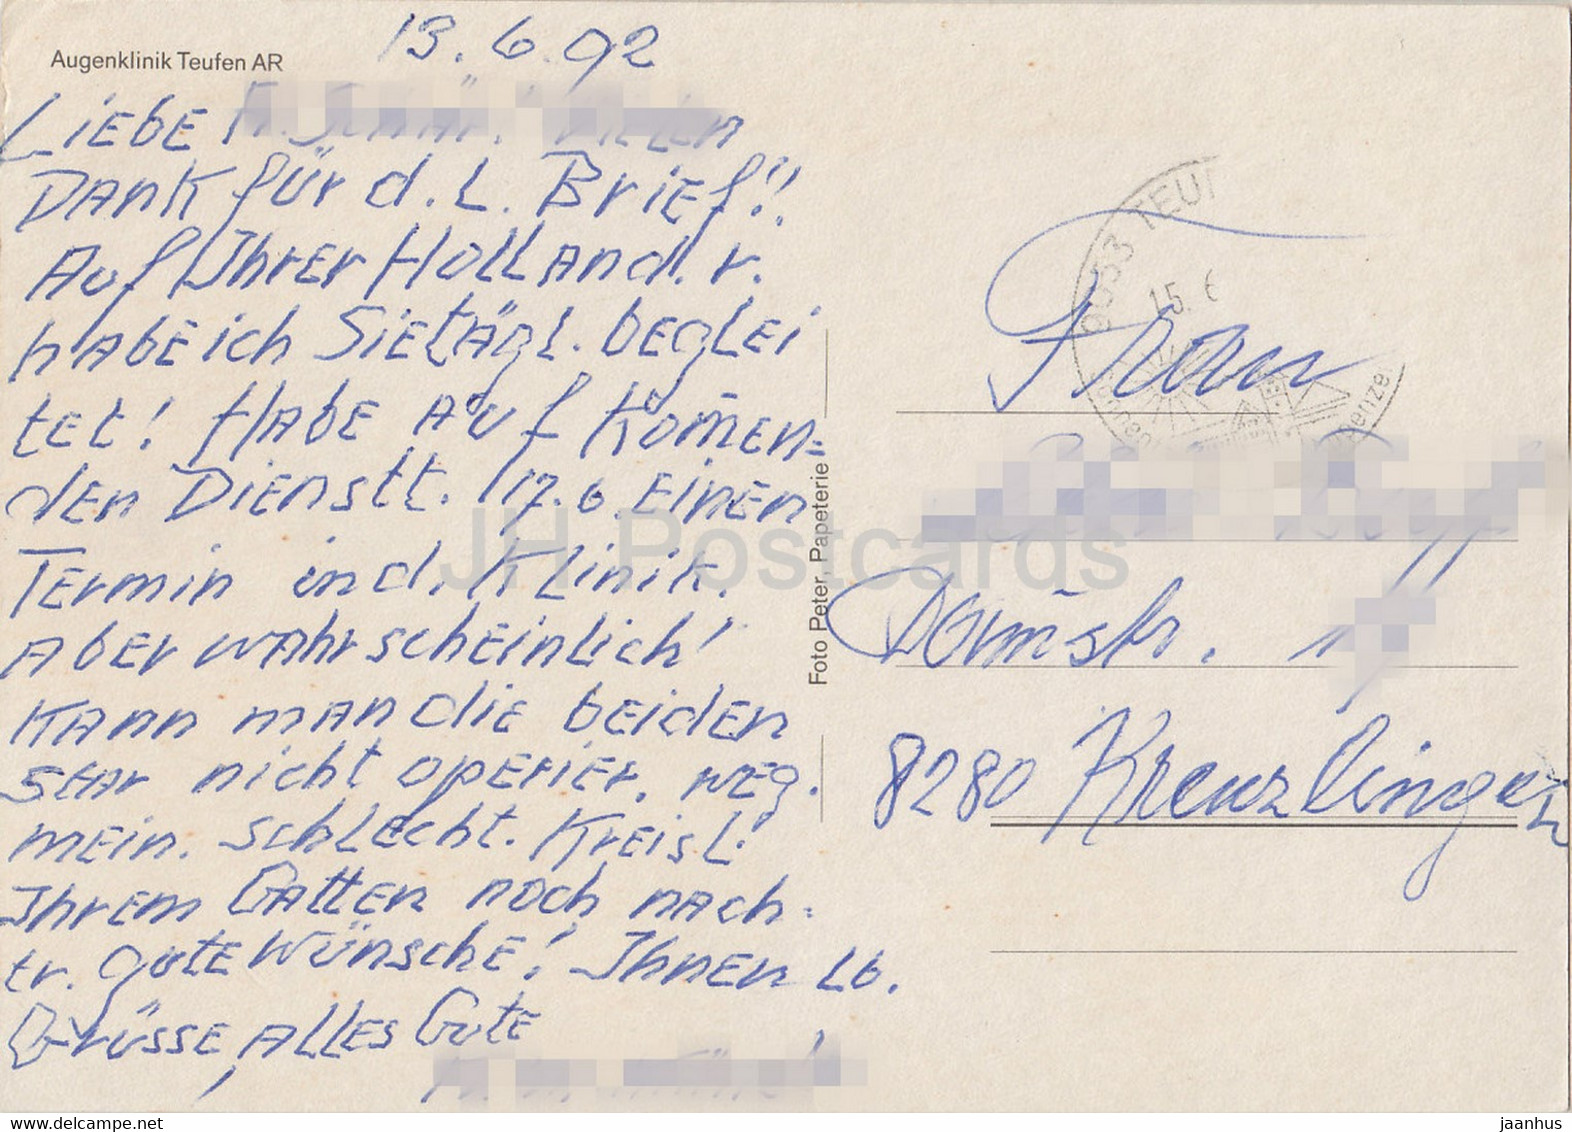 Augenklinik Teufen AR
13.6.92
Liebe
Dank für d. L. Brief!!
Auf Ihrer Holland. r.
habe ich Sie tägl. beglei
tet! Habe auf Kom̄en=
den Dienstt. 17.6. einen
Termin in d. Klinik.
Aber wahrscheinlich!
Kann man die beiden
Star nicht operier. weg.
mein. schlecht. Kreisl!
Ihrem Gatten noch nach=
tr. gute Wünsche! Ihnen Lb.
Grüsse, alles Gute
Foto Peter, Papeterie
9053 TEUF
15. 6
Frau
Dom̄str. 1
8280 Kreuzlingen
JH Postcards
delcampe.net
jaanhus